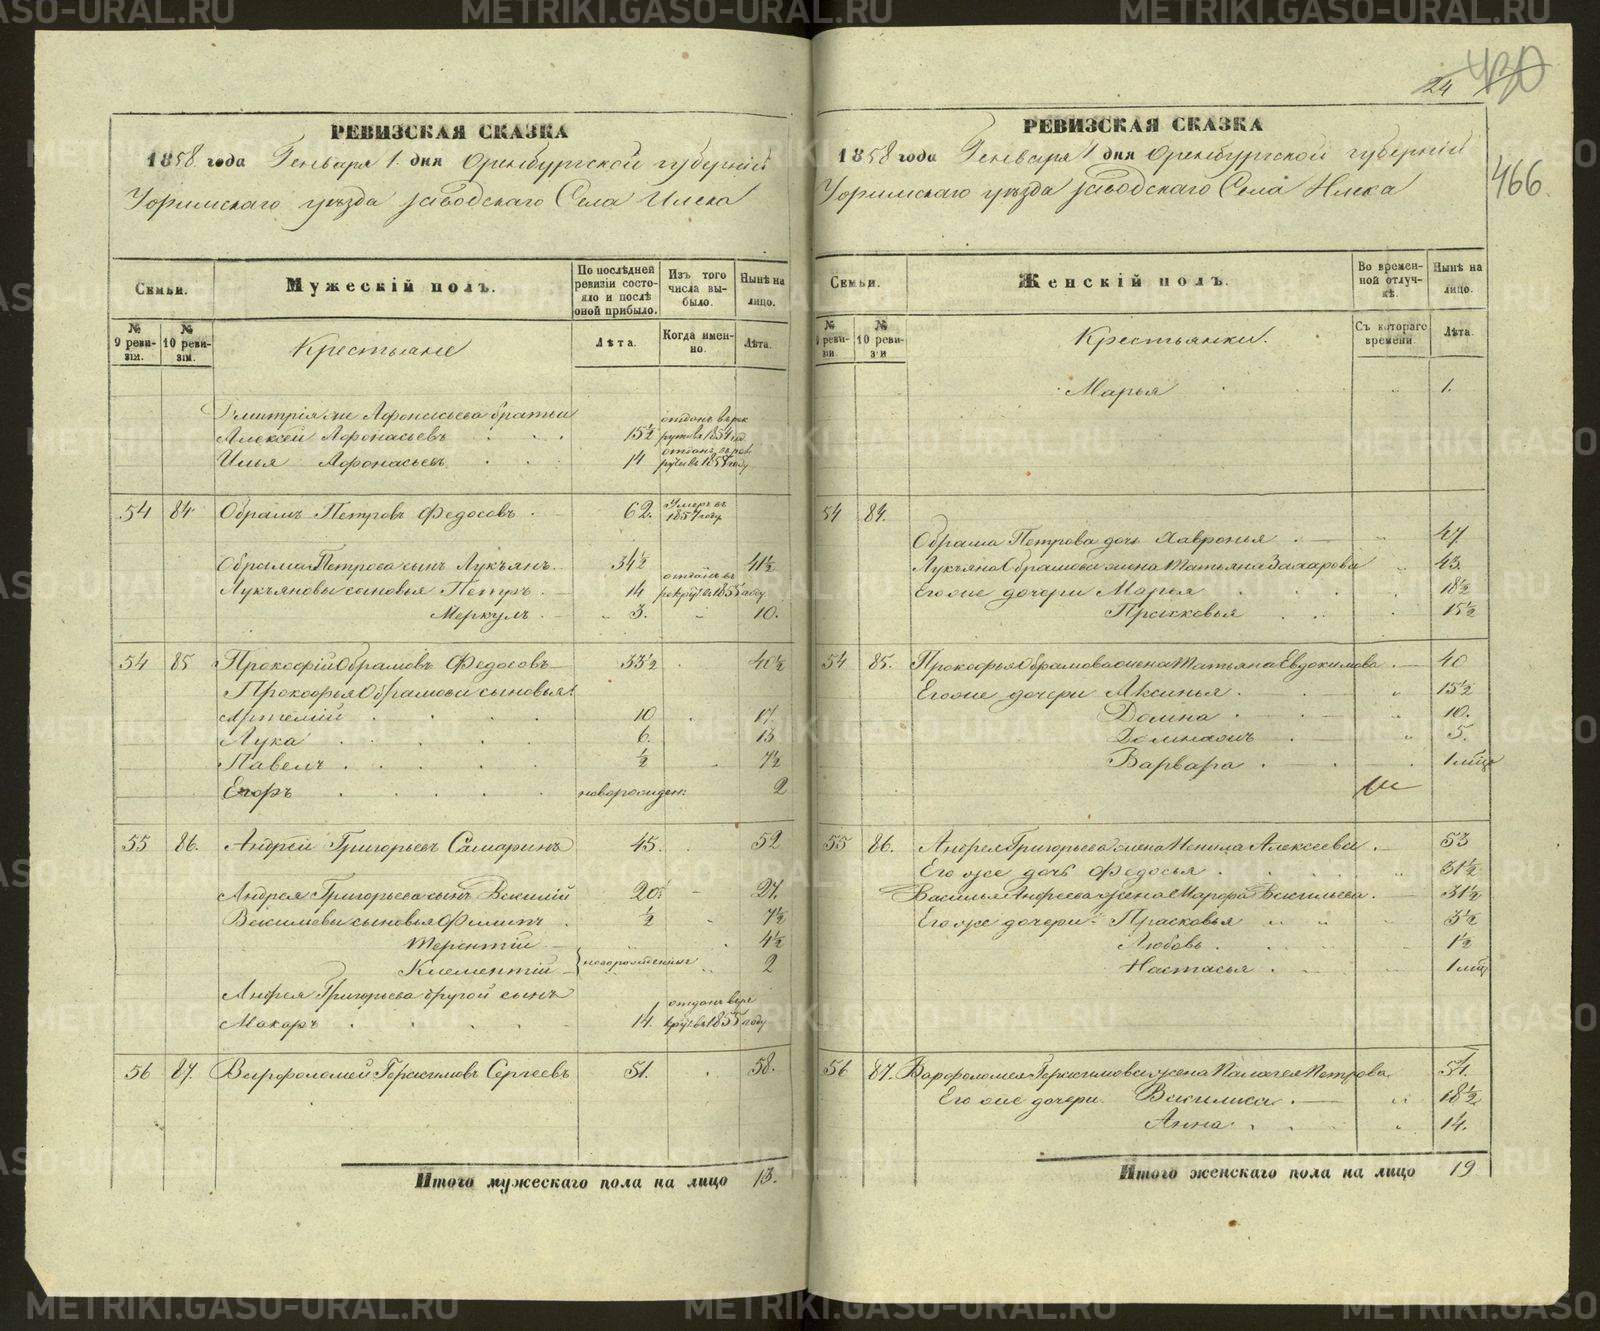 METRIKI.GASO-URAL.RU
24
430
466.
РЕВИЗСКАЯ СКАЗКА
1858 года Генваря 1. дня Оренбургской губерніи
Уфимскаго уѣзда заводскаго Села Илека
Семьи.
Мужескій полъ.
По послѣдней ревизіи состояло и послѣ оной прибыло.
Изъ того числа выбыло.
Нынѣ на лицо.
№ 9 ревизіи.
№ 10 ревизіи.
Крестьяне
Лѣта.
Когда именно.
Лѣта.
Дмитрія же Афонасьева братья
Алексей Афонасьевъ 15½ отданъ въ рекруты въ 1854 год.
Илья Афонасьевъ 14 отданъ въ рекруты въ 1857 году
54 84 Обрамъ Петровъ Федосовъ 62. Умеръ въ 1857 году
Обрама Петрова сынъ Лукъянъ 34½ 41½
Лукъяновы сыновья Петръ 14 отданъ въ рекруты 1855 году.
Меркулъ „ 3. „ 10.
54 85 Прокофій Обрамовъ Федосовъ 33½ 40½
Прокофья Обрамова сыновья:
Артемій 10 17
Лука 6. 13
Павелъ ½ 7½
Егоръ новорожден: 2
55 86. Андрей Григорьевъ Самаринъ 45. 52
Андрея Григорьева сынъ Василій 20. 27.
Васильевы сыновья Филипъ ½ „ 7½
Терентій 4½
Клементій новорожденные „ 2
Андрея Григорьева другой сынъ
Макаръ 14. отданъ въ рекруты въ 1855 году
56 87. Варфоломей Герасимовъ Сергеевъ 51. 58.
Итого мужескаго пола на лицо 13.
РЕВИЗСКАЯ СКАЗКА
1858 года Генваря 1 дня Оренбургской губерніи
Уфимскаго уѣзда заводскаго Села Илека
Семьи.
Женскій полъ.
Во временной отлучкѣ.
Нынѣ на лицо.
№ 9 ревизіи.
№ 10 ревизіи
Крестьянки.
Съ котораго времени.
Лѣта.
Марья „ 1.
54 84.
Обрама Петрова дочь Хавронья „ 47
Лукъяна Обрамова жена Татьяна Захарова „ 43.
Его же дочери Марья 18½
Прасковья 15½
54 85. Прокофья Обрамова жена Татьяна Евдокимова 40
Его же дочери Аксинья „ 15½
Домна 10.
„ 5.
Варвара 1 мѣся
55 86. Андрея Григорьева жена Ненила Алексеева 53
Его же дочь Федосья „ 31½
Василья Андреева жена Марфа Васильева 31½
Его же дочери: Прасковья „ „ 3½
Любовь 1½
Настасья 1 мѣся
56 87. Варфоломея Герасимова жена Палагея Петрова 57.
Его же дочери Василиса „ 18½
Анна „ 14.
Итого женскаго пола на лицо 19